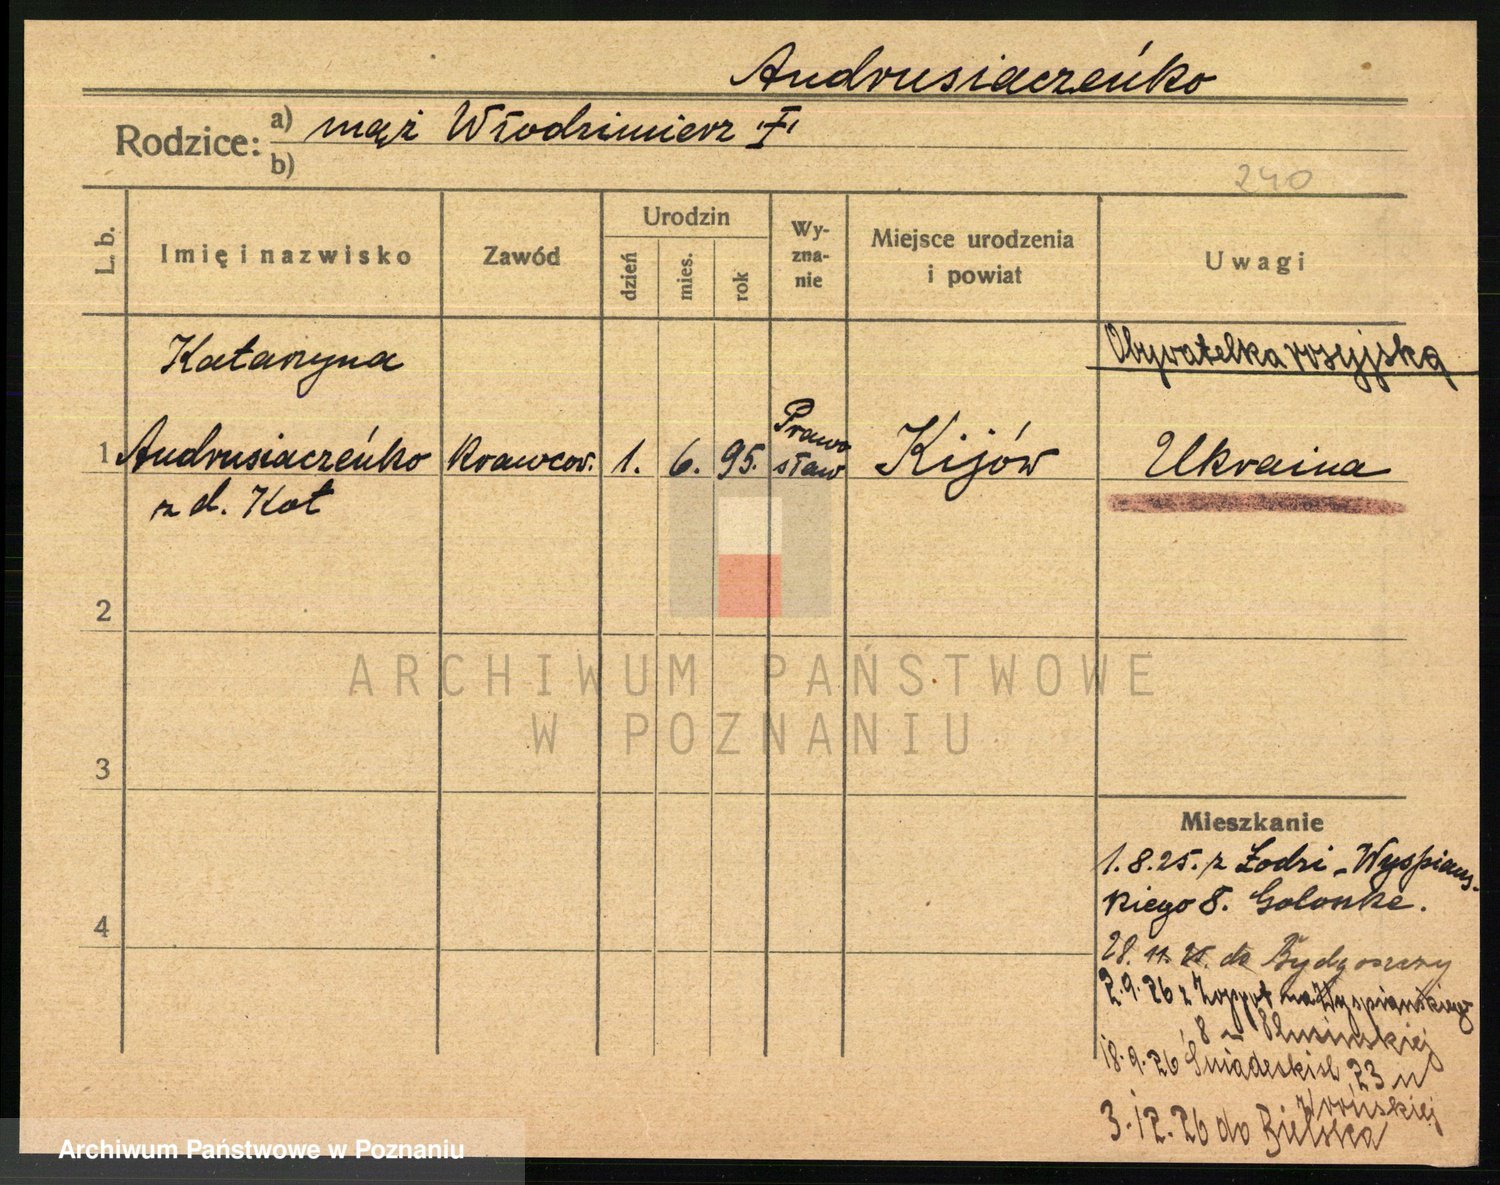 Andrusiaczeńko
Rodzice: a) mąż Włodzimierz "F"
b)
240
L. b.
Imię i nazwisko
Zawód
Urodzin
dzień
mies.
rok
Wy-
zna-
nie
Miejsce urodzenia
i powiat
Uwagi
Katarzyna
Obywatelka rosyjską
1 Andrusiaczeńko Krawcow. 1. 6. 95. Prawo
sław Kijów Ukraina
z d. Kot
2
3
4
Mieszkanie
1.8.25. z Łodzi - Wyspiańs-
kiego 8. Golonke.
28.11.25. do Bydgoszczy
2.9.26 z Zoppot na Wyspiańskiego
8 u
18.9.26 Śniadeckich 23 u
3.12.26 do Bielska
ARCHIWUM PAŃSTWOWE
W POZNANIU
Archiwum Państwowe w Poznaniu